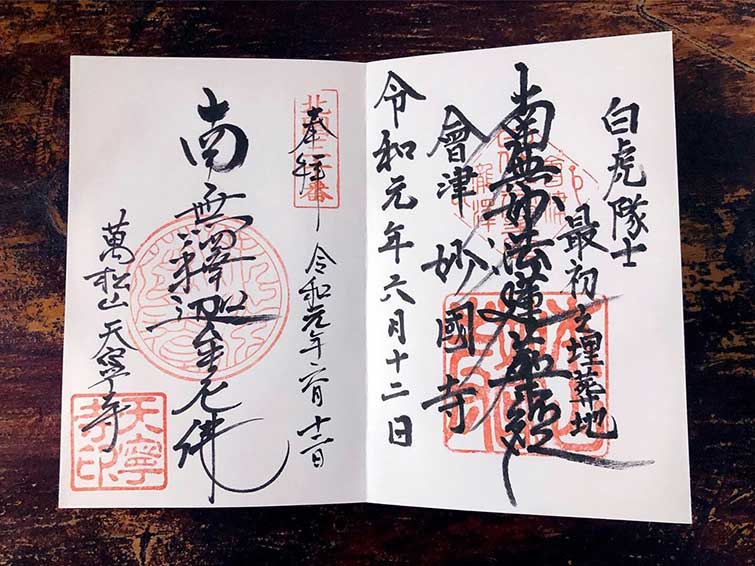 白虎隊士
最初之埋葬地
南無妙法蓮華経
會津 妙國寺
令和元年六月十二日
奉拝
令和元年六月十二日
南無釋迦牟尼佛
萬松山 天寧寺
天寧
寺印